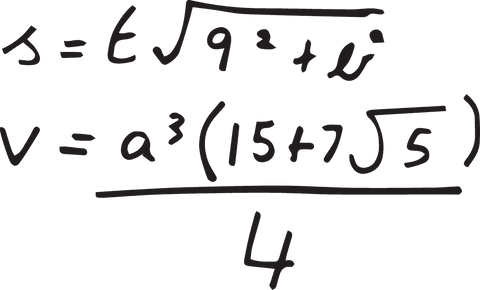 s = t√(9² + b^i)
v = a³(15+7√5)
4